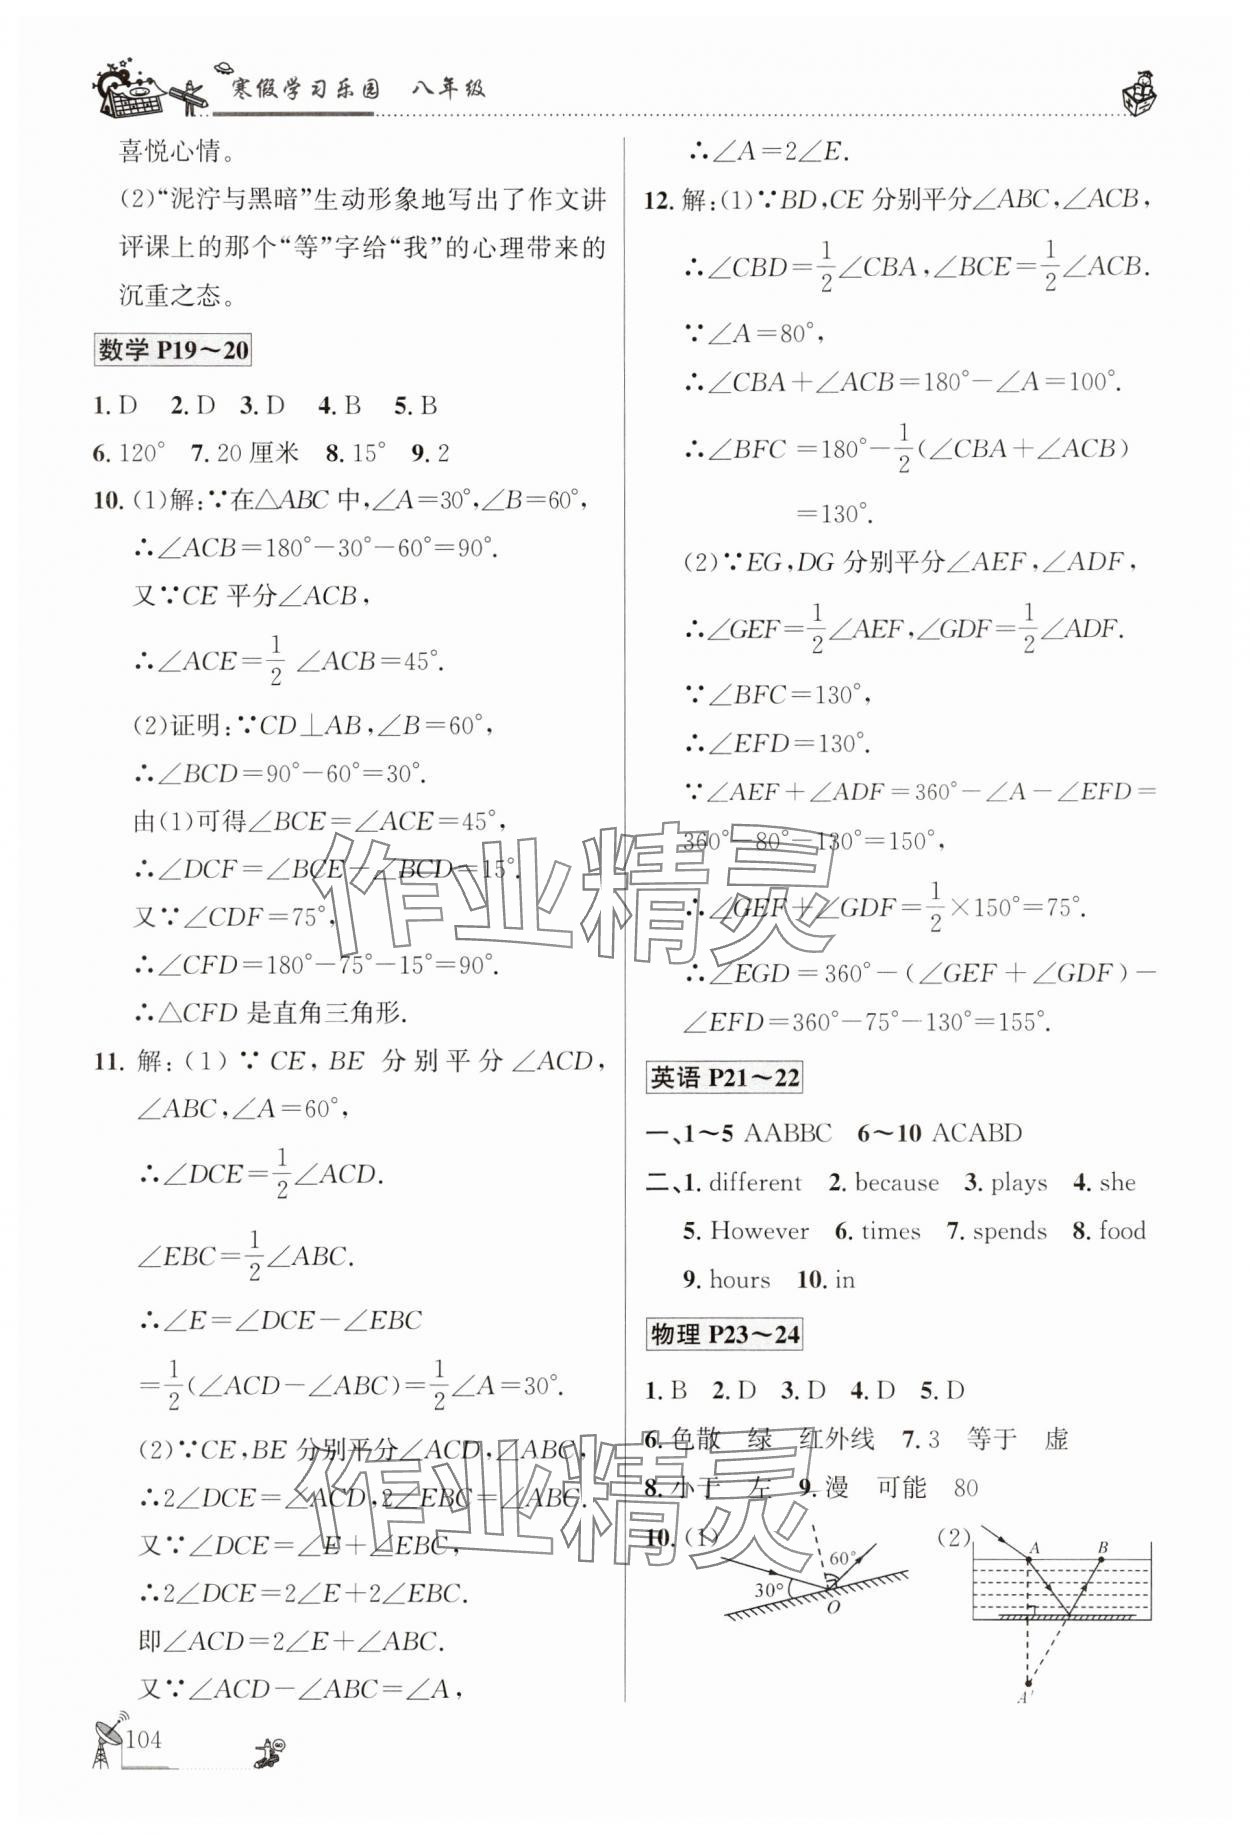 寒假学习乐园 八年级
喜悦心情。
(2)“泥泞与黑暗”生动形象地写出了作文讲
评课上的那个“等”字给“我”的心理带来的
沉重之态。
数学 P19～20
1. D 2. D 3. D 4. B 5. B
6. 120° 7. 20 厘米 8. 15° 9. 2
10. (1)解:∵在△ABC 中,∠A=30°,∠B=60°,
∴∠ACB=180°-30°-60°=90°.
又∵CE 平分∠ACB,
∴∠ACE=1/2 ∠ACB=45°.
(2)证明:∵CD⊥AB,∠B=60°,
∴∠BCD=90°-60°=30°.
由(1)可得∠BCE=∠ACE=45°,
∴∠DCF=∠BCE-∠BCD=15°.
又∵∠CDF=75°,
∴∠CFD=180°-75°-15°=90°.
∴△CFD 是直角三角形.
11. 解:(1)∵CE,BE 分别平分∠ACD,
∠ABC,∠A=60°,
∴∠DCE=1/2∠ACD.
∠EBC=1/2∠ABC.
∴∠E=∠DCE-∠EBC
=1/2(∠ACD-∠ABC)=1/2∠A=30°.
(2)∵CE,BE 分别平分∠ACD,∠ABC,
∴2∠DCE=∠ACD,2∠EBC=∠ABC.
又∵∠DCE=∠E+∠EBC,
∴2∠DCE=2∠E+2∠EBC.
即∠ACD=2∠E+∠ABC.
又∵∠ACD-∠ABC=∠A,
∴∠A=2∠E.
12. 解:(1)∵BD,CE 分别平分∠ABC,∠ACB,
∴∠CBD=1/2∠CBA,∠BCE=1/2∠ACB.
∵∠A=80°,
∴∠CBA+∠ACB=180°-∠A=100°.
∴∠BFC=180°-1/2(∠CBA+∠ACB)
=130°.
(2)∵EG,DG 分别平分∠AEF,∠ADF,
∴∠GEF=1/2∠AEF,∠GDF=1/2∠ADF.
∵∠BFC=130°,
∴∠EFD=130°.
∵∠AEF+∠ADF=360°-∠A-∠EFD=
360°-80°-130°=150°,
∴∠GEF+∠GDF=1/2×150°=75°.
∴∠EGD=360°-(∠GEF+∠GDF)-
∠EFD=360°-75°-130°=155°.
英语 P21～22
一、1～5 AABBC 6～10 ACABD
二、1. different 2. because 3. plays 4. she
5. However 6. times 7. spends 8. food
9. hours 10. in
物理 P23～24
1. B 2. D 3. D 4. D 5. D
6. 色散 绿 红外线 7. 3 等于 虚
8. 小于 左 9. 漫 可能 80
10. (1) 60° 30° O (2) A B A′
作业精灵
作业精灵
104